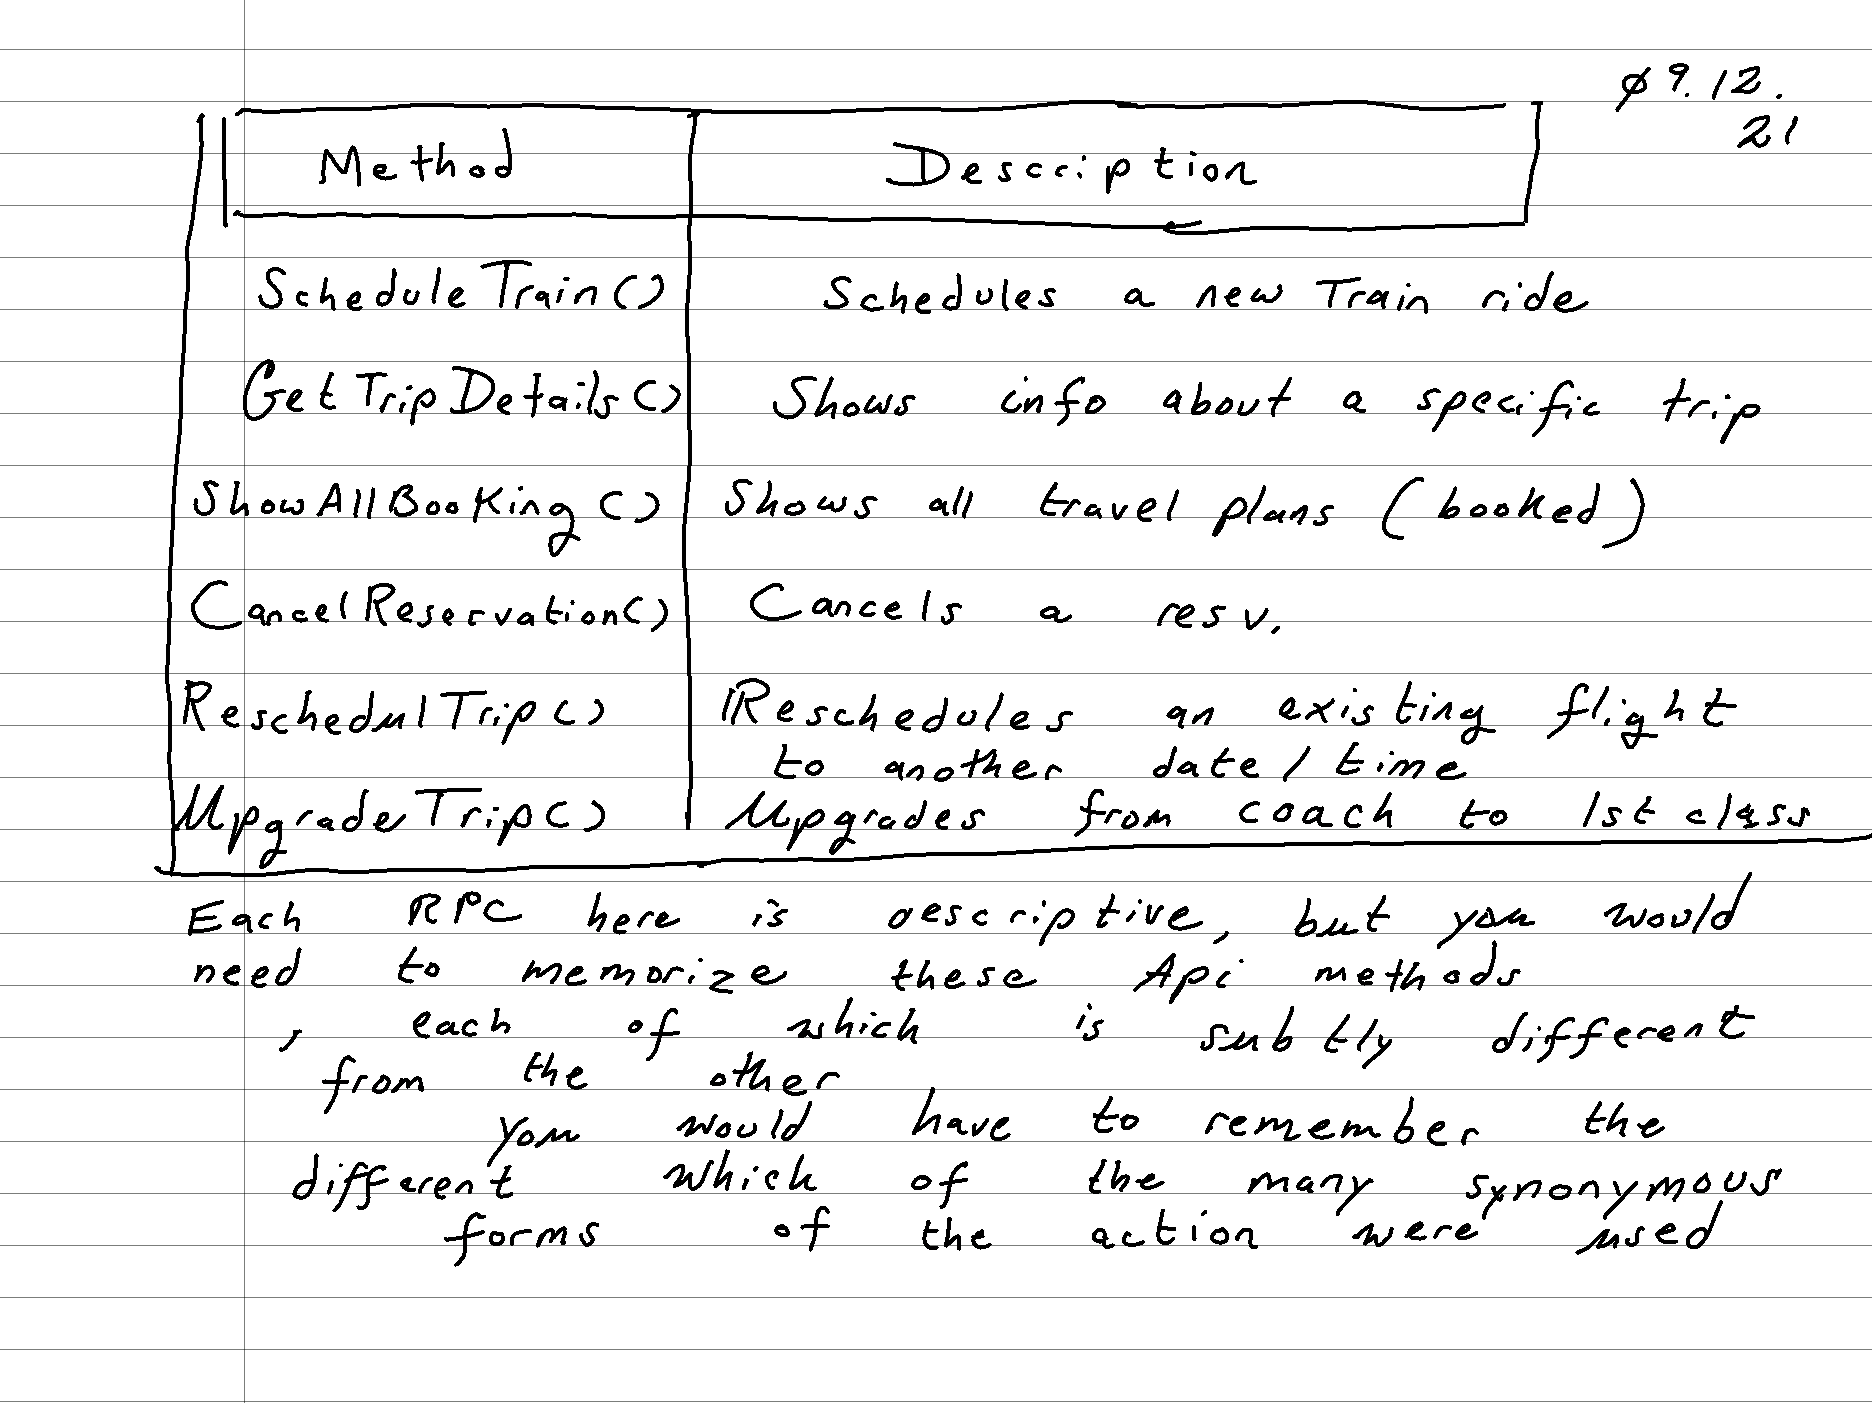 Ø9.12.
21
Method Description
ScheduleTrain() Schedules a new Train ride
GetTripDetails() Shows info about a specific trip
ShowAllBooKing() Shows all travel plans (booked)
CancelReservation() Cancels a resv.
ReschedulTrip() Reschedules an existing flight
to another date/time
UpgradeTrip() Upgrades from coach to 1st class
Each RPC here is descriptive, but you would
need to memorize these Api methods
, each of which is subtly different
from the other
you would have to remember the
different which of the many synonymous
forms of the action were used